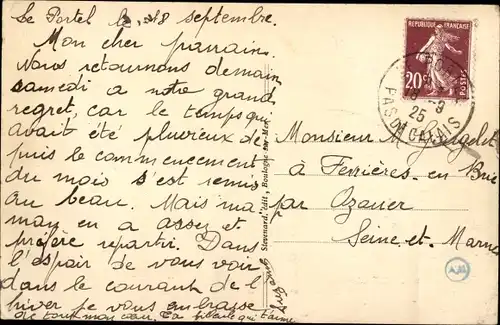 Le Portel le 18 septembre.
Mon cher parrain.
Nous retournons demain
samedi a notre grand
regret, car le temps qui
avait été pluvieux de-
puis le commencement
du mois s'est remis
au beau. Mais ma
may en a assez et
préfère repartir. Dans
l'espoir de vous voir
dans le courant de l'
hiver je vous embrasse
de tout mon cœur. Ta filleule qui t'aime
Stevenard, édit., Boulogne-sur-Mer
REPUBLIQUE FRANÇAISE
20c
POSTES
18 -9
25
PAS DE CALAIS
Monsieur
à Ferrières en Brie
par Ozouer
Seine et Marne